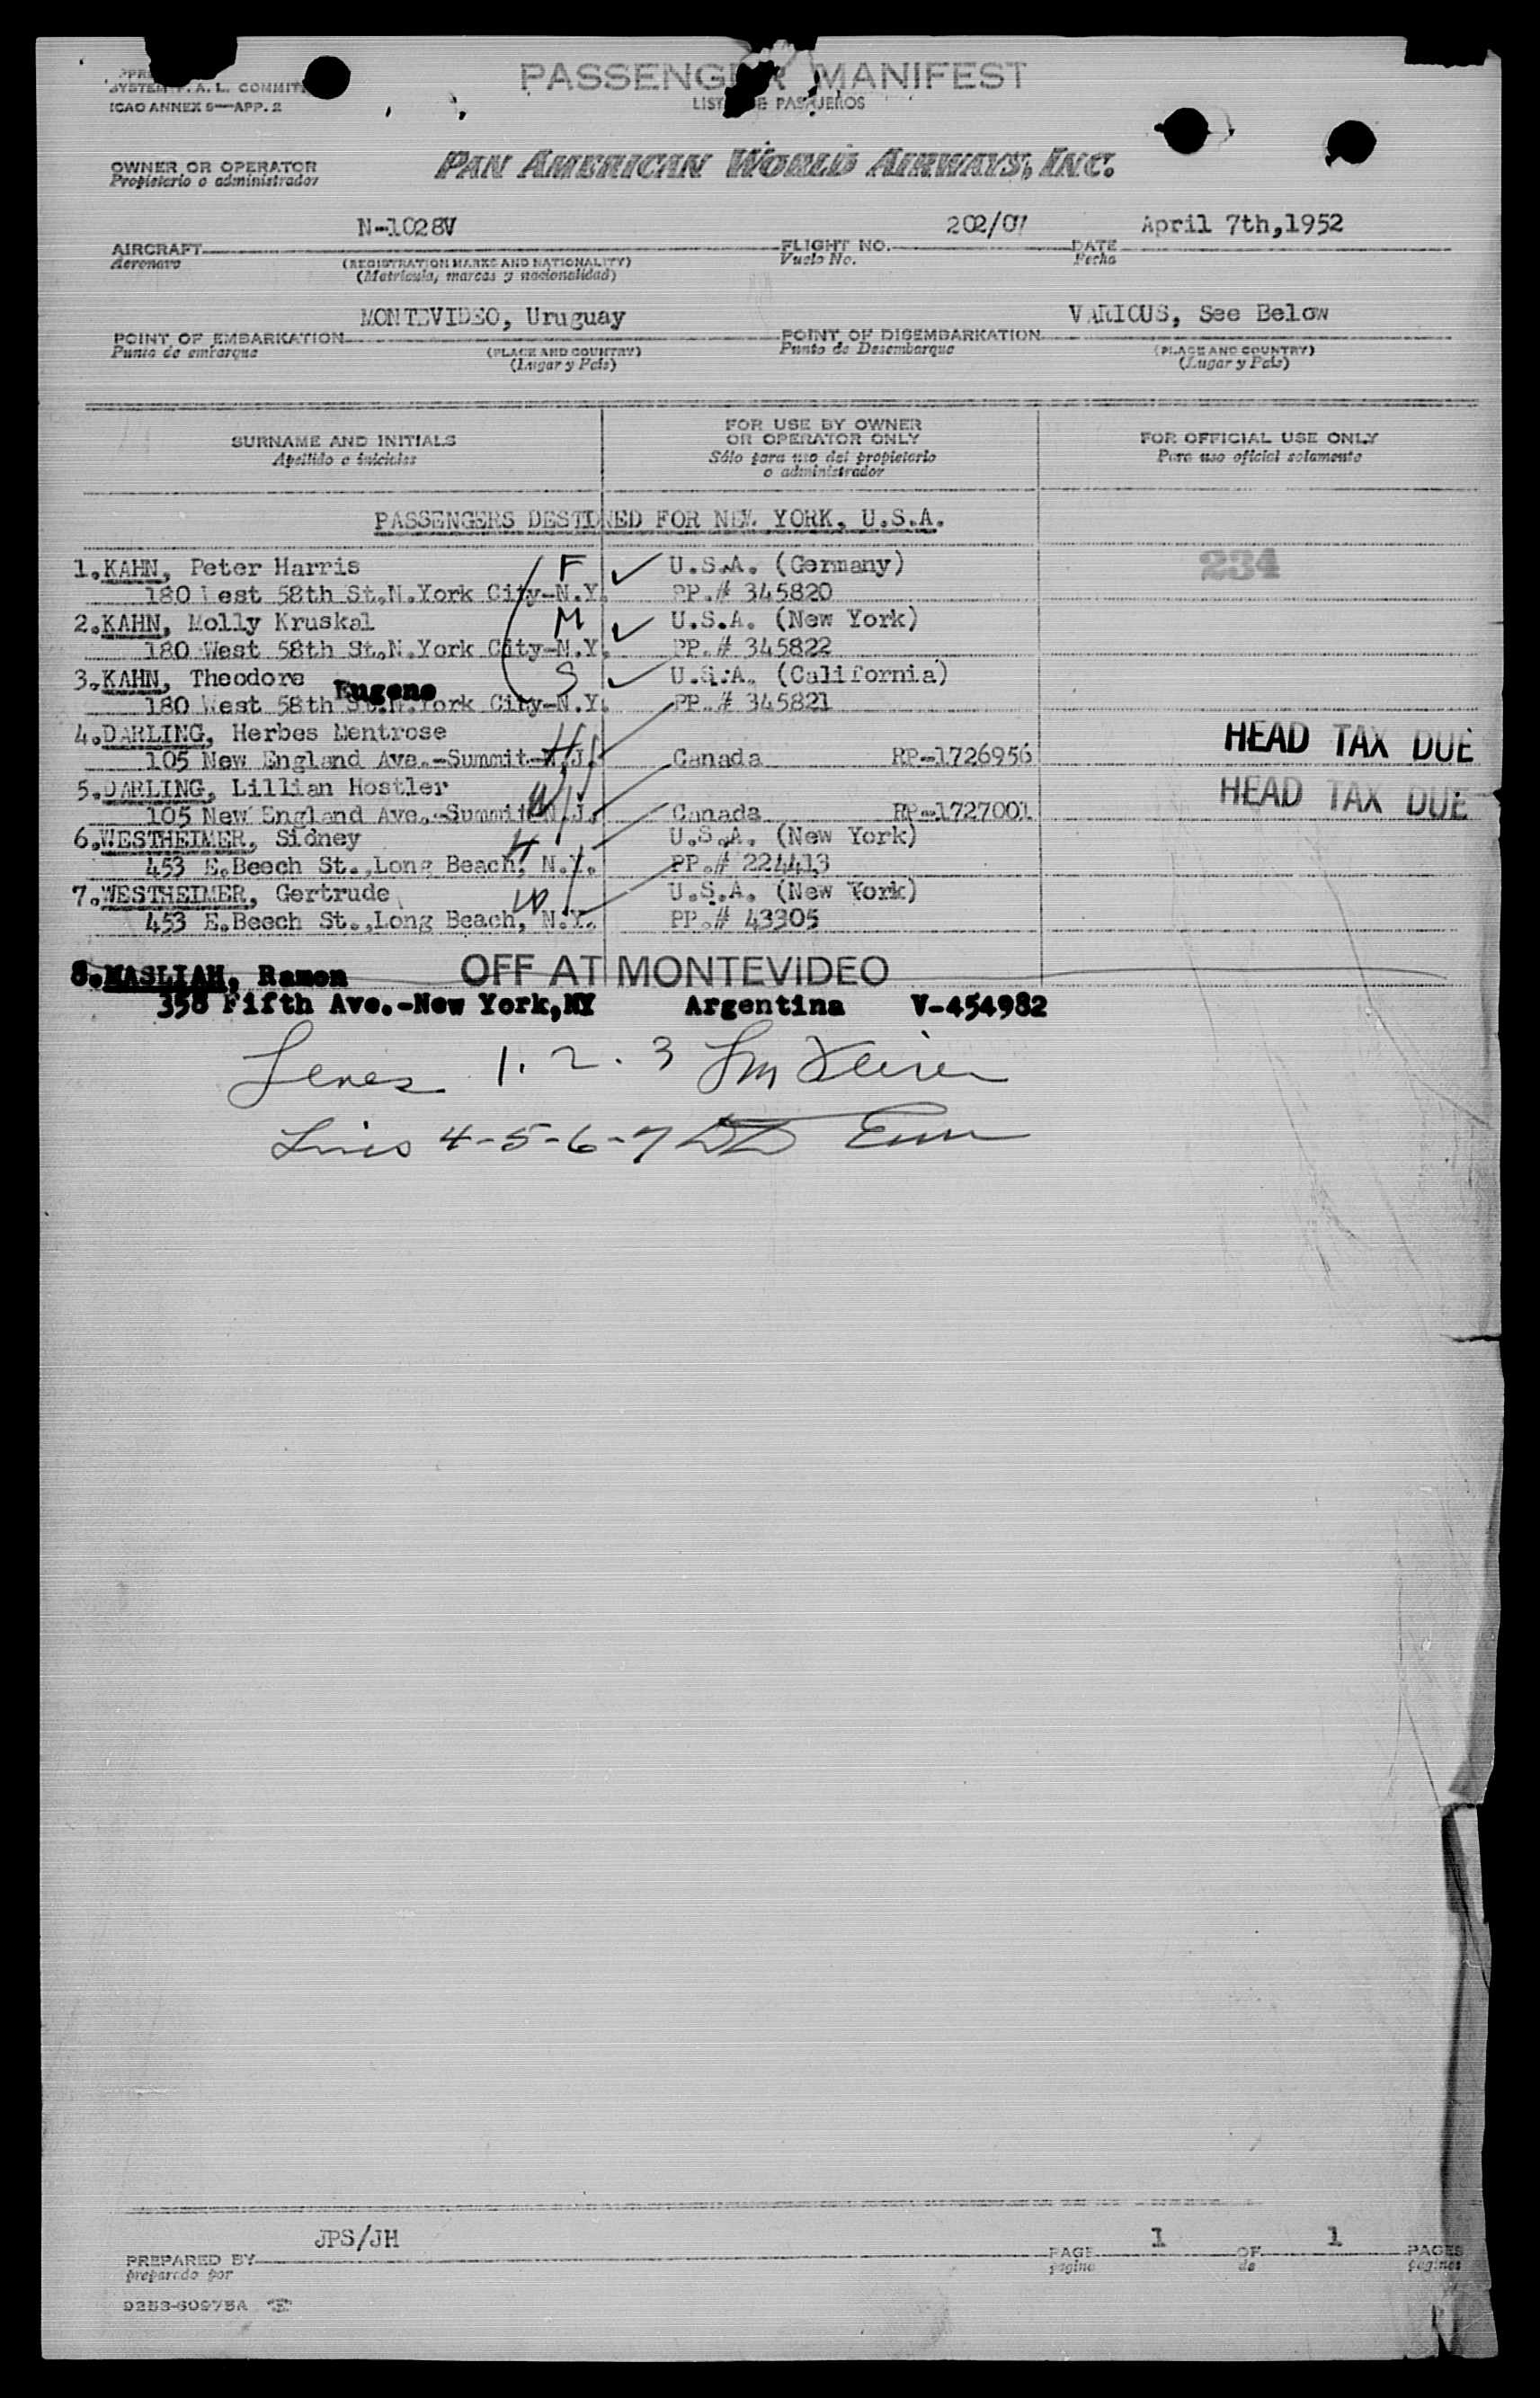 SYSTEM F. A. L. COMMIT
ICAO ANNEX 9—APP. 2
PASSENGER MANIFEST
LISTA DE PASAJEROS
OWNER OR OPERATOR
Propietario o administrador
PAN AMERICAN WORLD AIRWAYS, INC.
N-1028V 202/07 April 7th,1952
AIRCRAFT FLIGHT NO. DATE
Aeronave (REGISTRATION MARKS AND NATIONALITY) Vuelo No. Fecha
(Matrícula, marcas y nacionalidad)
MONTEVIDEO, Uruguay VARIOUS, See Below
POINT OF EMBARKATION POINT OF DISEMBARKATION
Punto de embarque (PLACE AND COUNTRY) Punto de Desembarque (PLACE AND COUNTRY)
(Lugar y País) (Lugar y País)
SURNAME AND INITIALS
Apellido e iniciales
FOR USE BY OWNER
OR OPERATOR ONLY
Sólo para uso del propietario
o administrador
FOR OFFICIAL USE ONLY
Para uso oficial solamente
PASSENGERS DESTINED FOR NEW YORK, U.S.A.
1.KAHN, Peter Harris F U.S.A. (Germany) 234
180 West 58th St.N.York City-N.Y. PP.# 345820
2.KAHN, Molly Kruskal M U.S.A. (New York)
180 West 58th St.N.York City-N.Y. PP.# 345822
3.KAHN, Theodore Eugene S U.S.A. (California)
180 West 58th St.N.York City-N.Y. PP.# 345821
4.DARLING, Herbes Mentrose H HEAD TAX DUE
105 New England Ave.-Summit-N.J. Canada RP-1726956
5.DARLING, Lillian Hostler W HEAD TAX DUE
105 New England Ave.-Summit-N.J. Canada RP-1727001
6.WESTHEIMER, Sidney H U.S.A. (New York)
453 E.Beech St.,Long Beach, N.Y. PP.# 224413
7.WESTHEIMER, Gertrude W U.S.A. (New York)
453 E.Beech St.,Long Beach, N.Y. PP.# 43305
8.MASLIAH, Ramon OFF AT MONTEVIDEO
358 Fifth Ave.-New York,NY Argentina V-454982
1. 2. 3
Lines 4-5-6-7
JPS/JH 1 1
PREPARED BY PAGE OF PAGES
preparado por página de páginas
9253-60975A